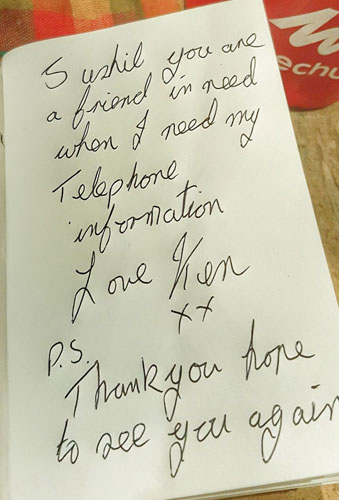 Sushil you are
a friend in need
when I need my
Telephone
information
Love Ken
xx
P.S.
Thankyou hope
to see you again
echu